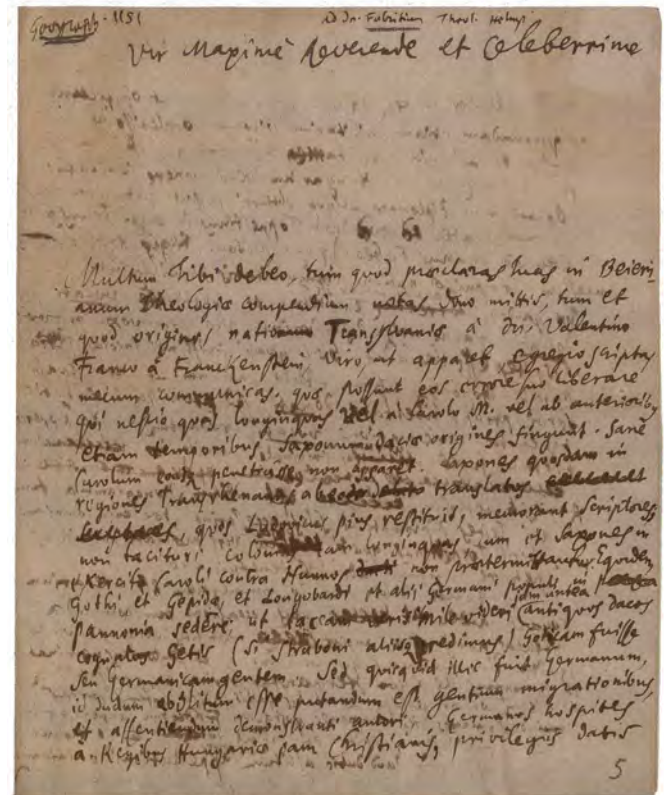 Geograph. 1151
Ad Dn. Fabritium Theol. Helmst
Vir Maximè Reverende et Celeberrime
Multum Tibi debeo, tum quod praeclaras tuas in Beieri-
anum Theologiae compendium notas dono mittis, tum et
quod origines nationum Transylvaniae à dno Valentino
Franco à Franckenstein, Viro, ut apparet egregio scriptas
mecum communicas. quae possunt eos errore suo liberare
qui nescio quas longinquas vel à Carolo M. vel ab anterioribus
etiam temporibus, Saxonum Dacis origines fingunt. Sanè
Carolum penetrasse, non apparet. Saxones quosdam in
regiones Transrhenanas translatos
quos Ludovicus pius restituit, memorant Scriptores,
non tacituri Coloniam tam longinquam, cum et Saxones in
Exercitu Caroli contra Hunnos non praetermittant. Equidem
Gothi, et Gepidae, et Longobardi et alii Germani populi in
pannonia sedere, ut jam antea antiquos Dacos
cognatos Getis (si Straboni aliisque credimus) Gothicam fuisse
seu Germanicam gentem. Sed quicquid illic fuit Germanum,
id dudum abolitum esse putandum est gentium migrationibus,
et assentiendum demonstranti autori, Germanos hospites
à Regibus Hungariae jam Christianis, privilegiis datis
5